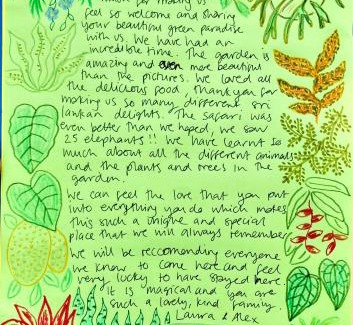 for making us
feel so welcome and sharing
your beautiful green paradise
with us. We have had an
incredible time. The garden is
amazing and even more beautiful
than the pictures. We loved all
the delicious food, thankyou for
making us so many different Sri
Lankan delights. The safari was
even better than we hoped, we saw
25 elephants!! We have learnt so
much about all the different animals
and the plants and trees in the
garden.
We can feel the love that you put
into everything you do which makes
this such a unique and special
place that we will always remember
We will be reccomending everyone
we know to come here and feel
very lucky to have stayed here.
It is magical and you are
such a lovely, kind family
Laura & Alex